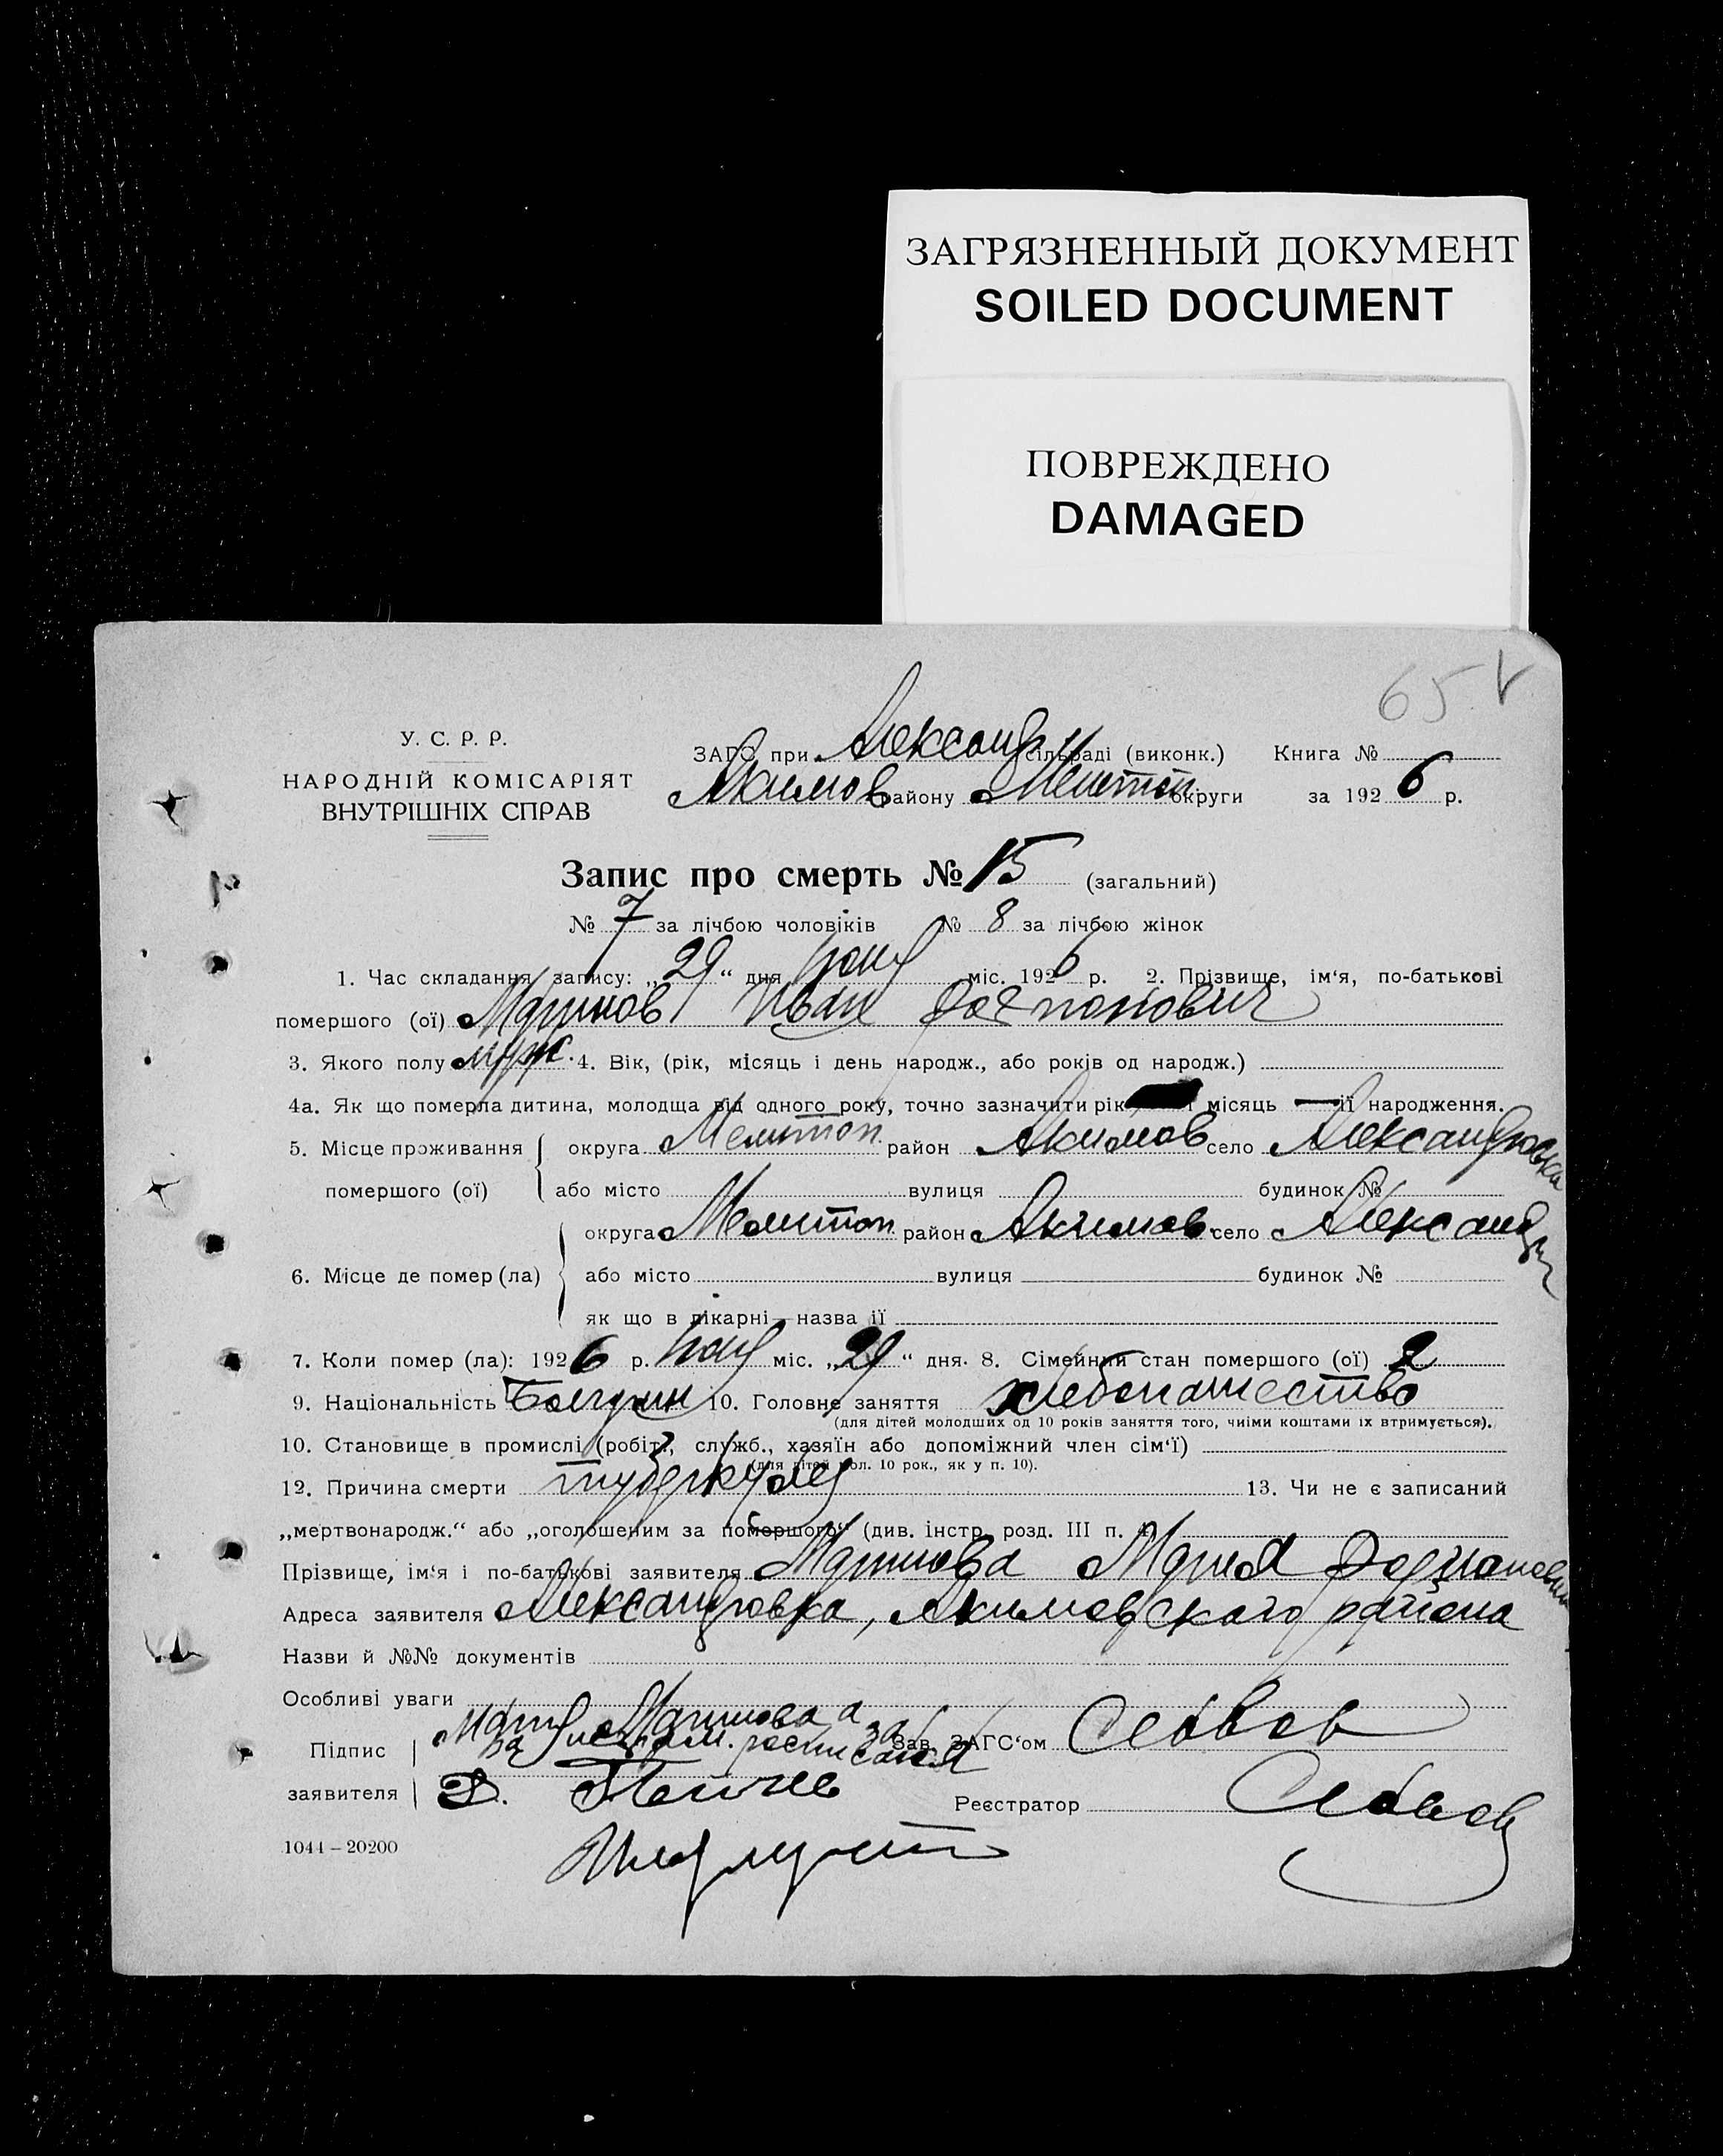 ЗАГРЯЗНЕННЫЙ ДОКУМЕНТ
SOILED DOCUMENT
ПОВРЕЖДЕНО
DAMAGED
65
У. С. Р. Р.
НАРОДНІЙ КОМІСАРІЯТ
ВНУТРІШНІХ СПРАВ
ЗАГС при Александр сільраді (виконк.) Книга №
Акимов району Мелитоп. округи за 1926 р.
Запис про смерть № 15 (загальний)
№ 7 за лічбою чоловіків № 8 за лічбою жінок
1. Час складання запису: „29“ дня міс. 1926 р. 2. Прізвище, ім‘я, по-батькові
помершого (ої) Маринов Иван
3. Якого полу муж. 4. Вік, (рік, місяць і день народж., або років од народж.)
4а. Як що померла дитина, молодща від одного року, точно зазначити рік і місяць — її народження.
5. Місце проживання округа Мелитоп. район Акимов село Александровка
помершого (ої) або місто вулиця будинок №
округа Мелитоп. район Акимов. село Александр
6. Місце де помер (ла) або місто вулиця будинок №
як що в лікарні—назва її
7. Коли помер (ла): 1926 р. міс. „29“ дня. 8. Сімейний стан помершого (ої) 2
9. Національність Болгарин 10. Головне заняття хлебопашество
(для дітей молодших од 10 років заняття того, чиїми коштами їх втримується).
10. Становище в промислі (робітн, служб., хазяїн або допоміжний член сім‘ї)
(для дітей мол. 10 рок., як у п. 10).
12. Причина смерти туберкулез 13. Чи не є записаний
„мертвонародж.“ або „оголошеним за помершого“ (див. інстр. розд. III п.
Прізвище, ім‘я і по-батькові заявителя Маринова Мария
Адреса заявителя Александровка, Акимовского района
Назви й №№ документів
Особливі уваги
Мария Маринова а
за неграм. росписался
Підпис Зав. ЗАГС‘ом
заявителя Д. Реєстратор
1044—20200